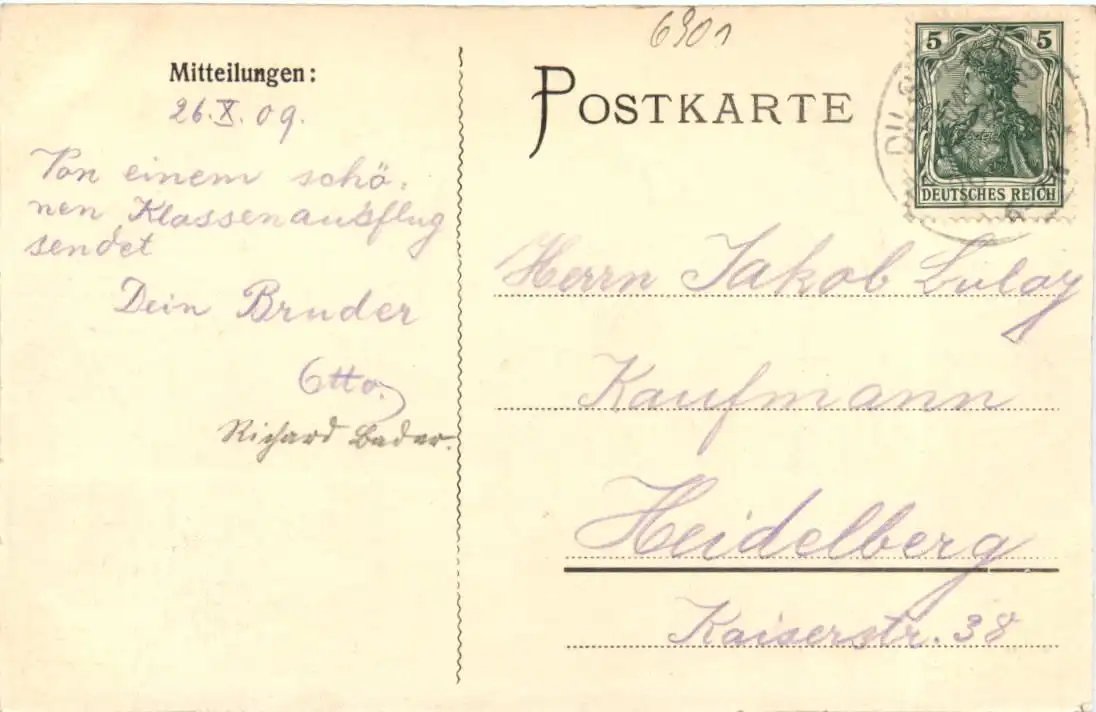 Mitteilungen:
26.X.09.
Von einem schö-
nen Klassenausflug
sendet
Dein Bruder
Otto.
Richard Bader.
6901
POSTKARTE
5 5
DEUTSCHES REICH
Herrn Jakob Lulay
Kaufmann
Heidelberg
Kaiserstr. 38